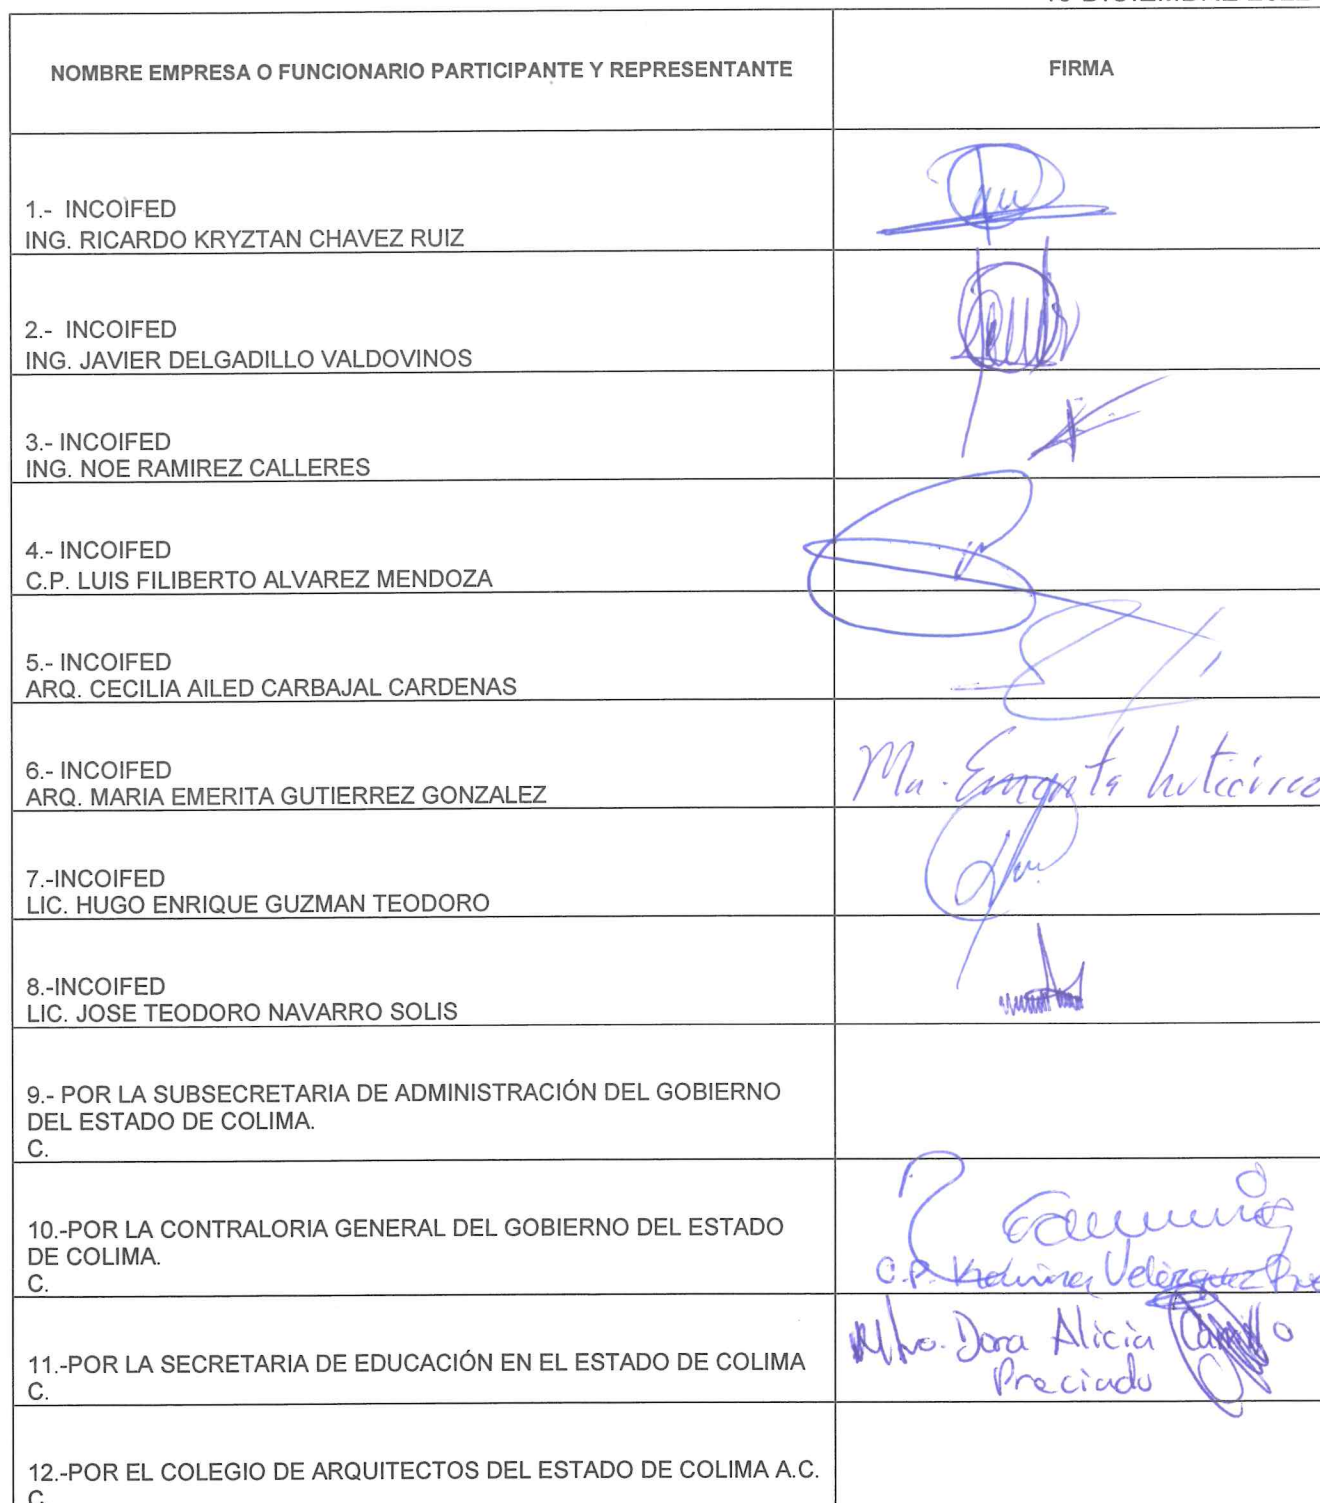 NOMBRE EMPRESA O FUNCIONARIO PARTICIPANTE Y REPRESENTANTE
FIRMA
1.- INCOIFED
ING. RICARDO KRYZTAN CHAVEZ RUIZ
2.- INCOIFED
ING. JAVIER DELGADILLO VALDOVINOS
3.- INCOIFED
ING. NOE RAMIREZ CALLERES
4.- INCOIFED
C.P. LUIS FILIBERTO ALVAREZ MENDOZA
5.- INCOIFED
ARQ. CECILIA AILED CARBAJAL CARDENAS
6.- INCOIFED
ARQ. MARIA EMERITA GUTIERREZ GONZALEZ
Ma. Emerita Gutiérrez
7.-INCOIFED
LIC. HUGO ENRIQUE GUZMAN TEODORO
8.-INCOIFED
LIC. JOSE TEODORO NAVARRO SOLIS
9.- POR LA SUBSECRETARIA DE ADMINISTRACIÓN DEL GOBIERNO
DEL ESTADO DE COLIMA.
C.
10.-POR LA CONTRALORIA GENERAL DEL GOBIERNO DEL ESTADO
DE COLIMA.
C.
C.P. Velázquez
11.-POR LA SECRETARIA DE EDUCACIÓN EN EL ESTADO DE COLIMA
C.
Dora Alicia
Preciado
12.-POR EL COLEGIO DE ARQUITECTOS DEL ESTADO DE COLIMA A.C.
C